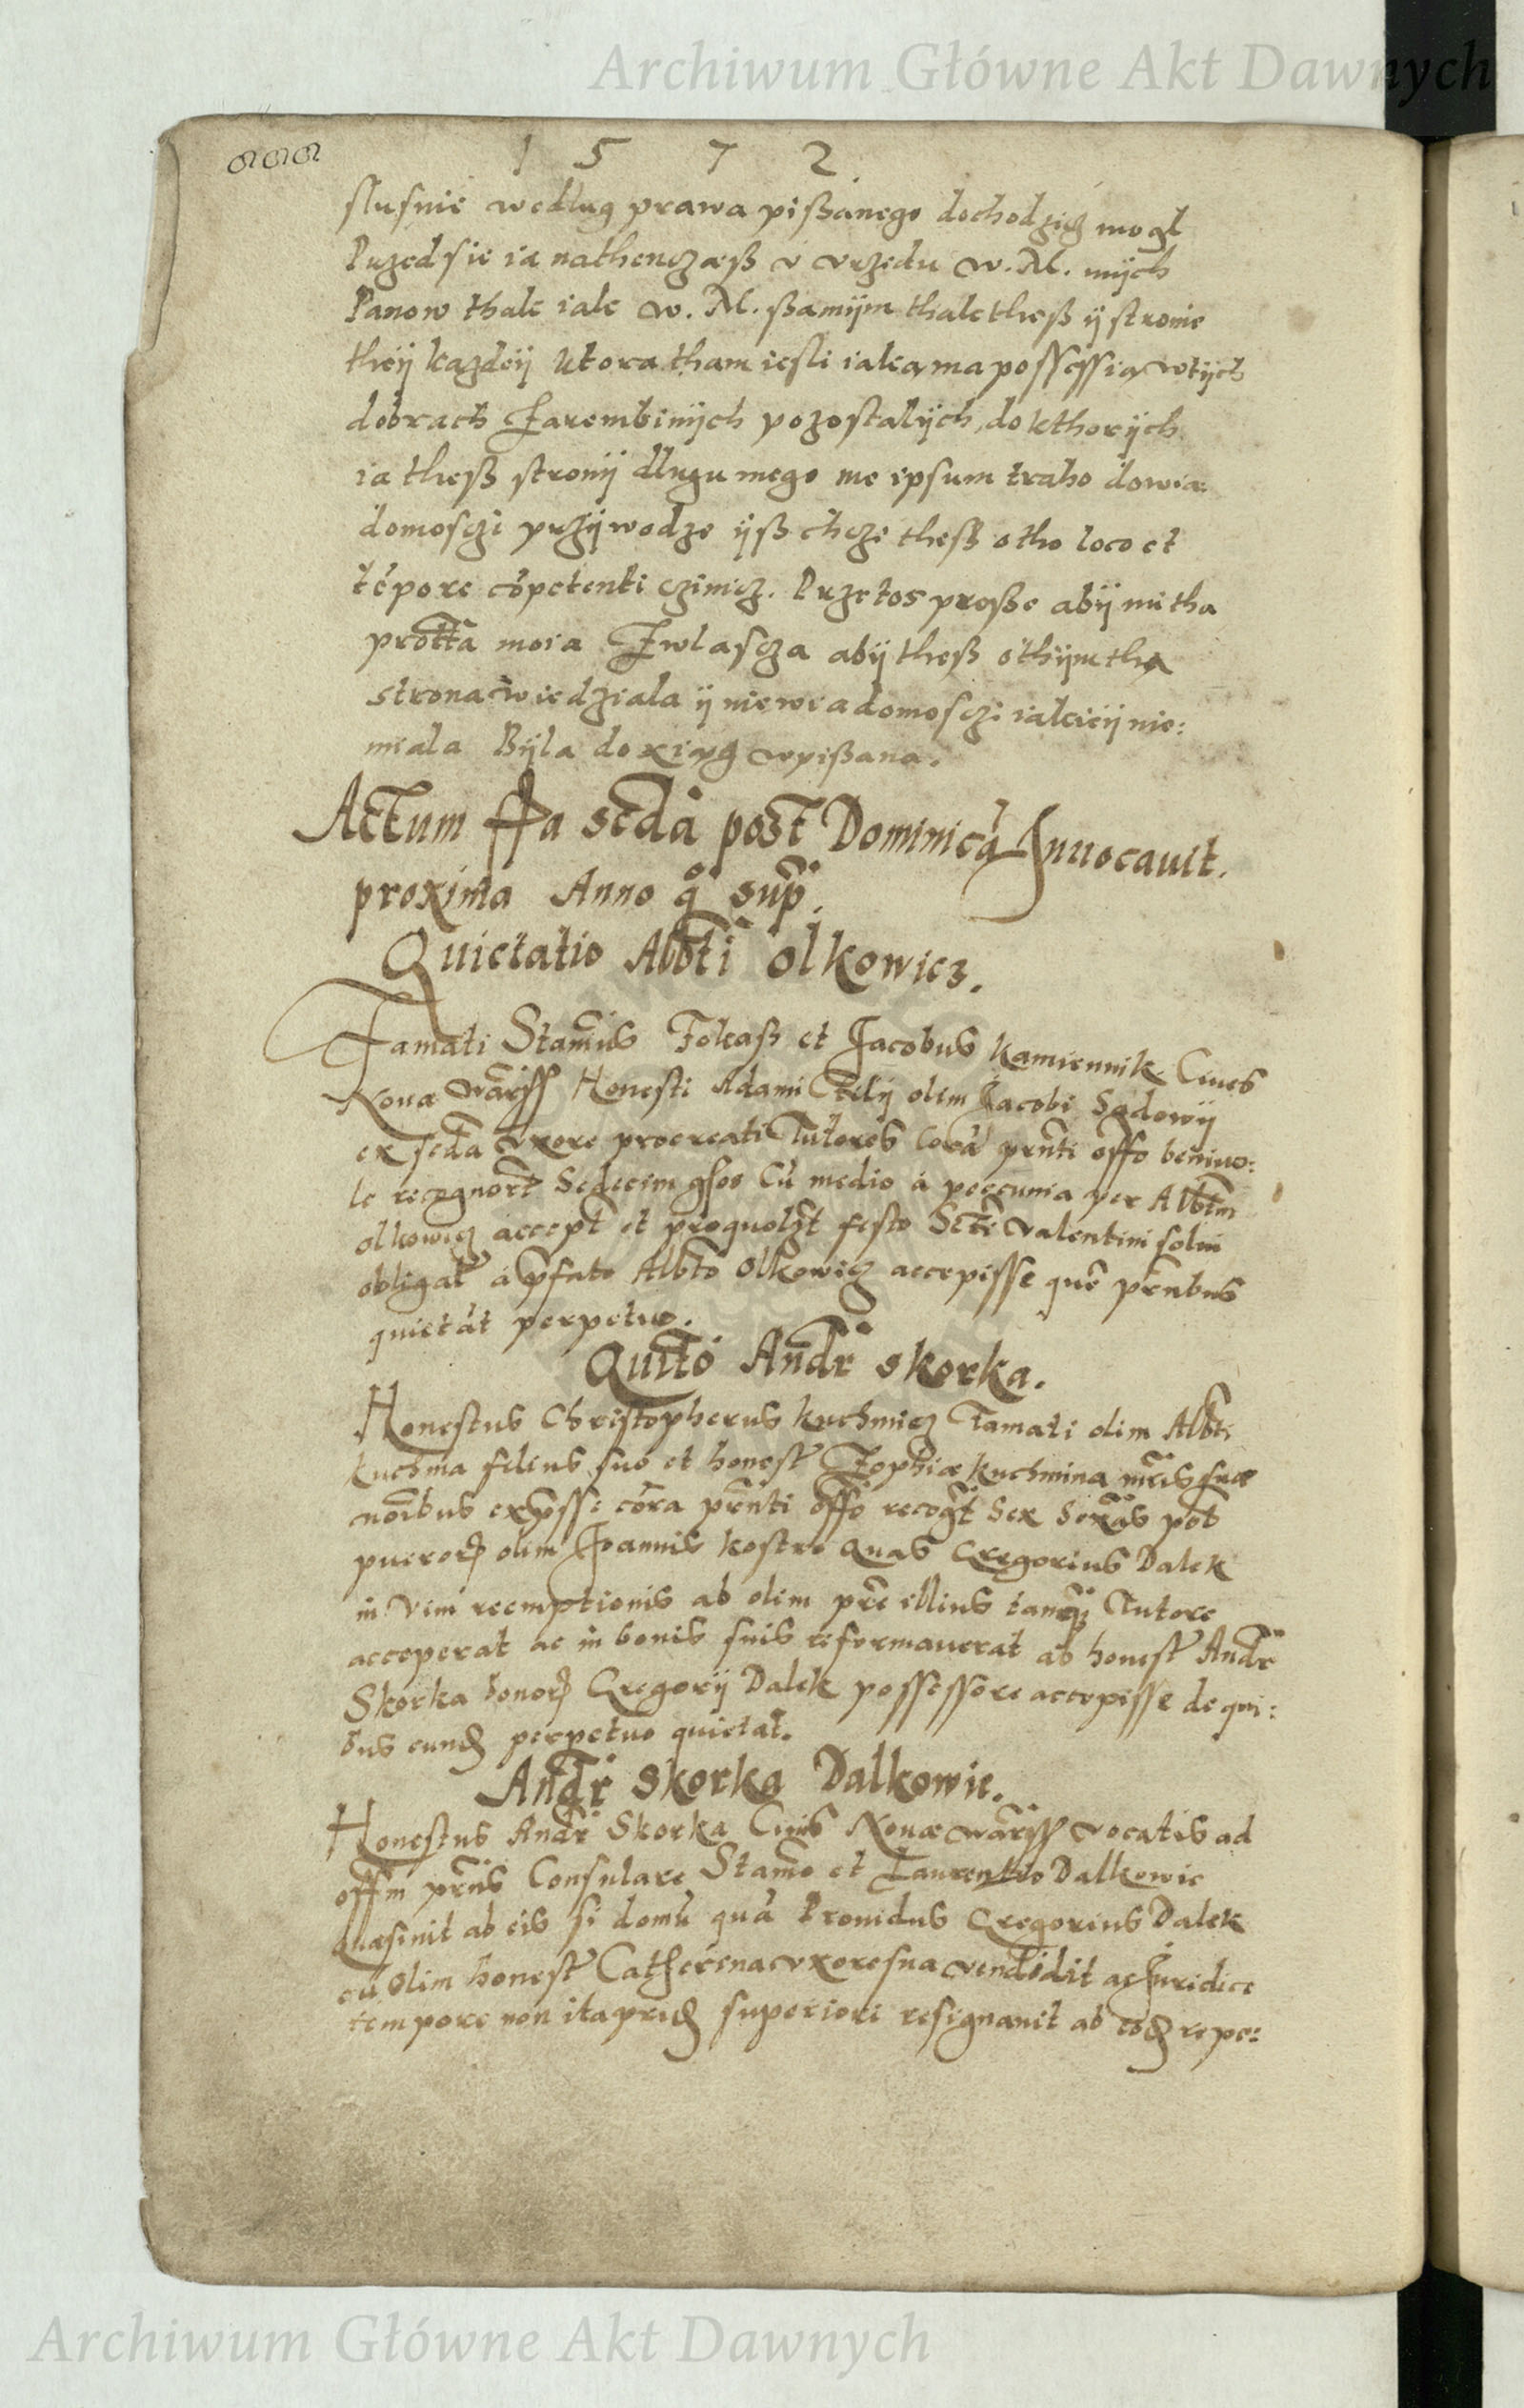 Archiwum Główne Akt Dawnych
1 5 7 2
slusnie według prawa pißanego dochodzicz mogl
Przed sie ia nathenczaß v vrzedu w. M. mych
Panow thak iak w. M. ßamÿm thak theß ÿ stronie
theÿ kazdeÿ ktora tham iesli iaką ma possessią wtÿch
dobrach Zarembinÿch pozostalÿch, do kthorÿch
ia theß stronÿ dlugu mego me ipsum traho dowia
domosczi przÿwodze ÿß chcze theß otho loco et
tēpore cōpetenti czinicz. Przetos proße abÿ mi tha
prottā moia Zwlascza abÿ theß othÿm tha
strona wiedziala ÿ niewiadomosczi iakieÿ nie:
miala Bÿla do xiąg wpißana.
Actum ffia scdā post Dominicā Inuocauit.
proxima Anno q̊ sup̄.
Quietatio Albti olkowicz.
Famati Stanius Fokaß et Jacobus Kamiennik Ciues
Nouæ Warss Honesti Adami filÿ olim Jacobi Sadowÿ
ex scda vxore procreati Tutores Corā prnti offo beniuo:
le recognort Sedecim gsos Cū medio à peccunia per Albtm
olkowicz accept et pro quolzt festo Scti Valentini solui
obligatr à pfato Albto Olkowicz accepisse quē prntibus
quietāt perpetuo.
Quitō Andr Skorka.
Honestus Christopherus Kuchmicz Famati olim Albti
Kuchma filius suo et honestæ Zophiæ Kuchmina mris suæ
noibus expsse cora prnti offo recogt Sex Sexās pot
pueror olim Joannis Kostro quas Gregorius Dalek
in vim reemptionis ab olim pre illius tanq Tutore
acceperat ac in bonis suis reformauerat ab honesto Andr
Skorka bonor Gregorÿ Dalek possessore accepisse de qui:
bus eund perpetuo quietat.
Andr Skorka Dalkowie.
Honestus Andr Skorka Ciuis Nouæ Warss vocatis ad
offm prns Consulare Stano et Laurentio Dalkowie
quæsiuit ab eis si domū quā Prouidus Gregorius Dalek
cū olim honesta Catherina vxore sua vendidit ac Juridice
tempore non ita prid superiori resignauit ab eod repe:
Archiwum Główne Akt Dawnych